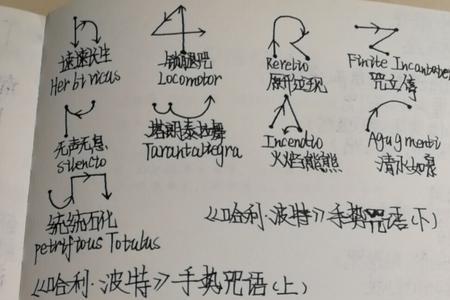 速速长生
Herbivicus
锁腿咒
Locomotor
Reretio
原形立现
Finite Incantatem
咒立停
无声无息
silencio
塔朗泰拉舞
Tarantallegra
Incendio
火焰熊熊
Aguamenti
清水如泉
统统石化
petrifious Totulus
《哈利·波特》手势咒语(下)
《哈利·波特》手势咒语(上)